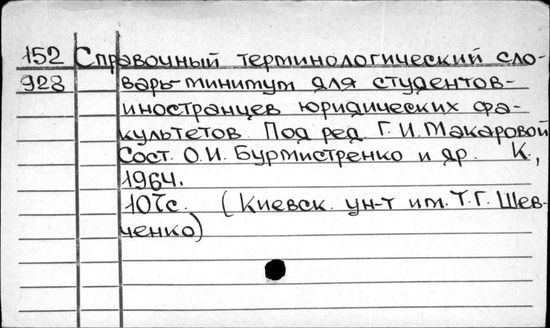 152 Справочный терминологический сло-
928 варь-минимум для студентов-
иностранцев юридических фа-
культетов. Под ред. Г.И. Макаровой
Сост. О.И. Бурмистренко и др. К.,
1964.
107с. (Киевск. ун-т им. Т.Г. Шев-
ченко)